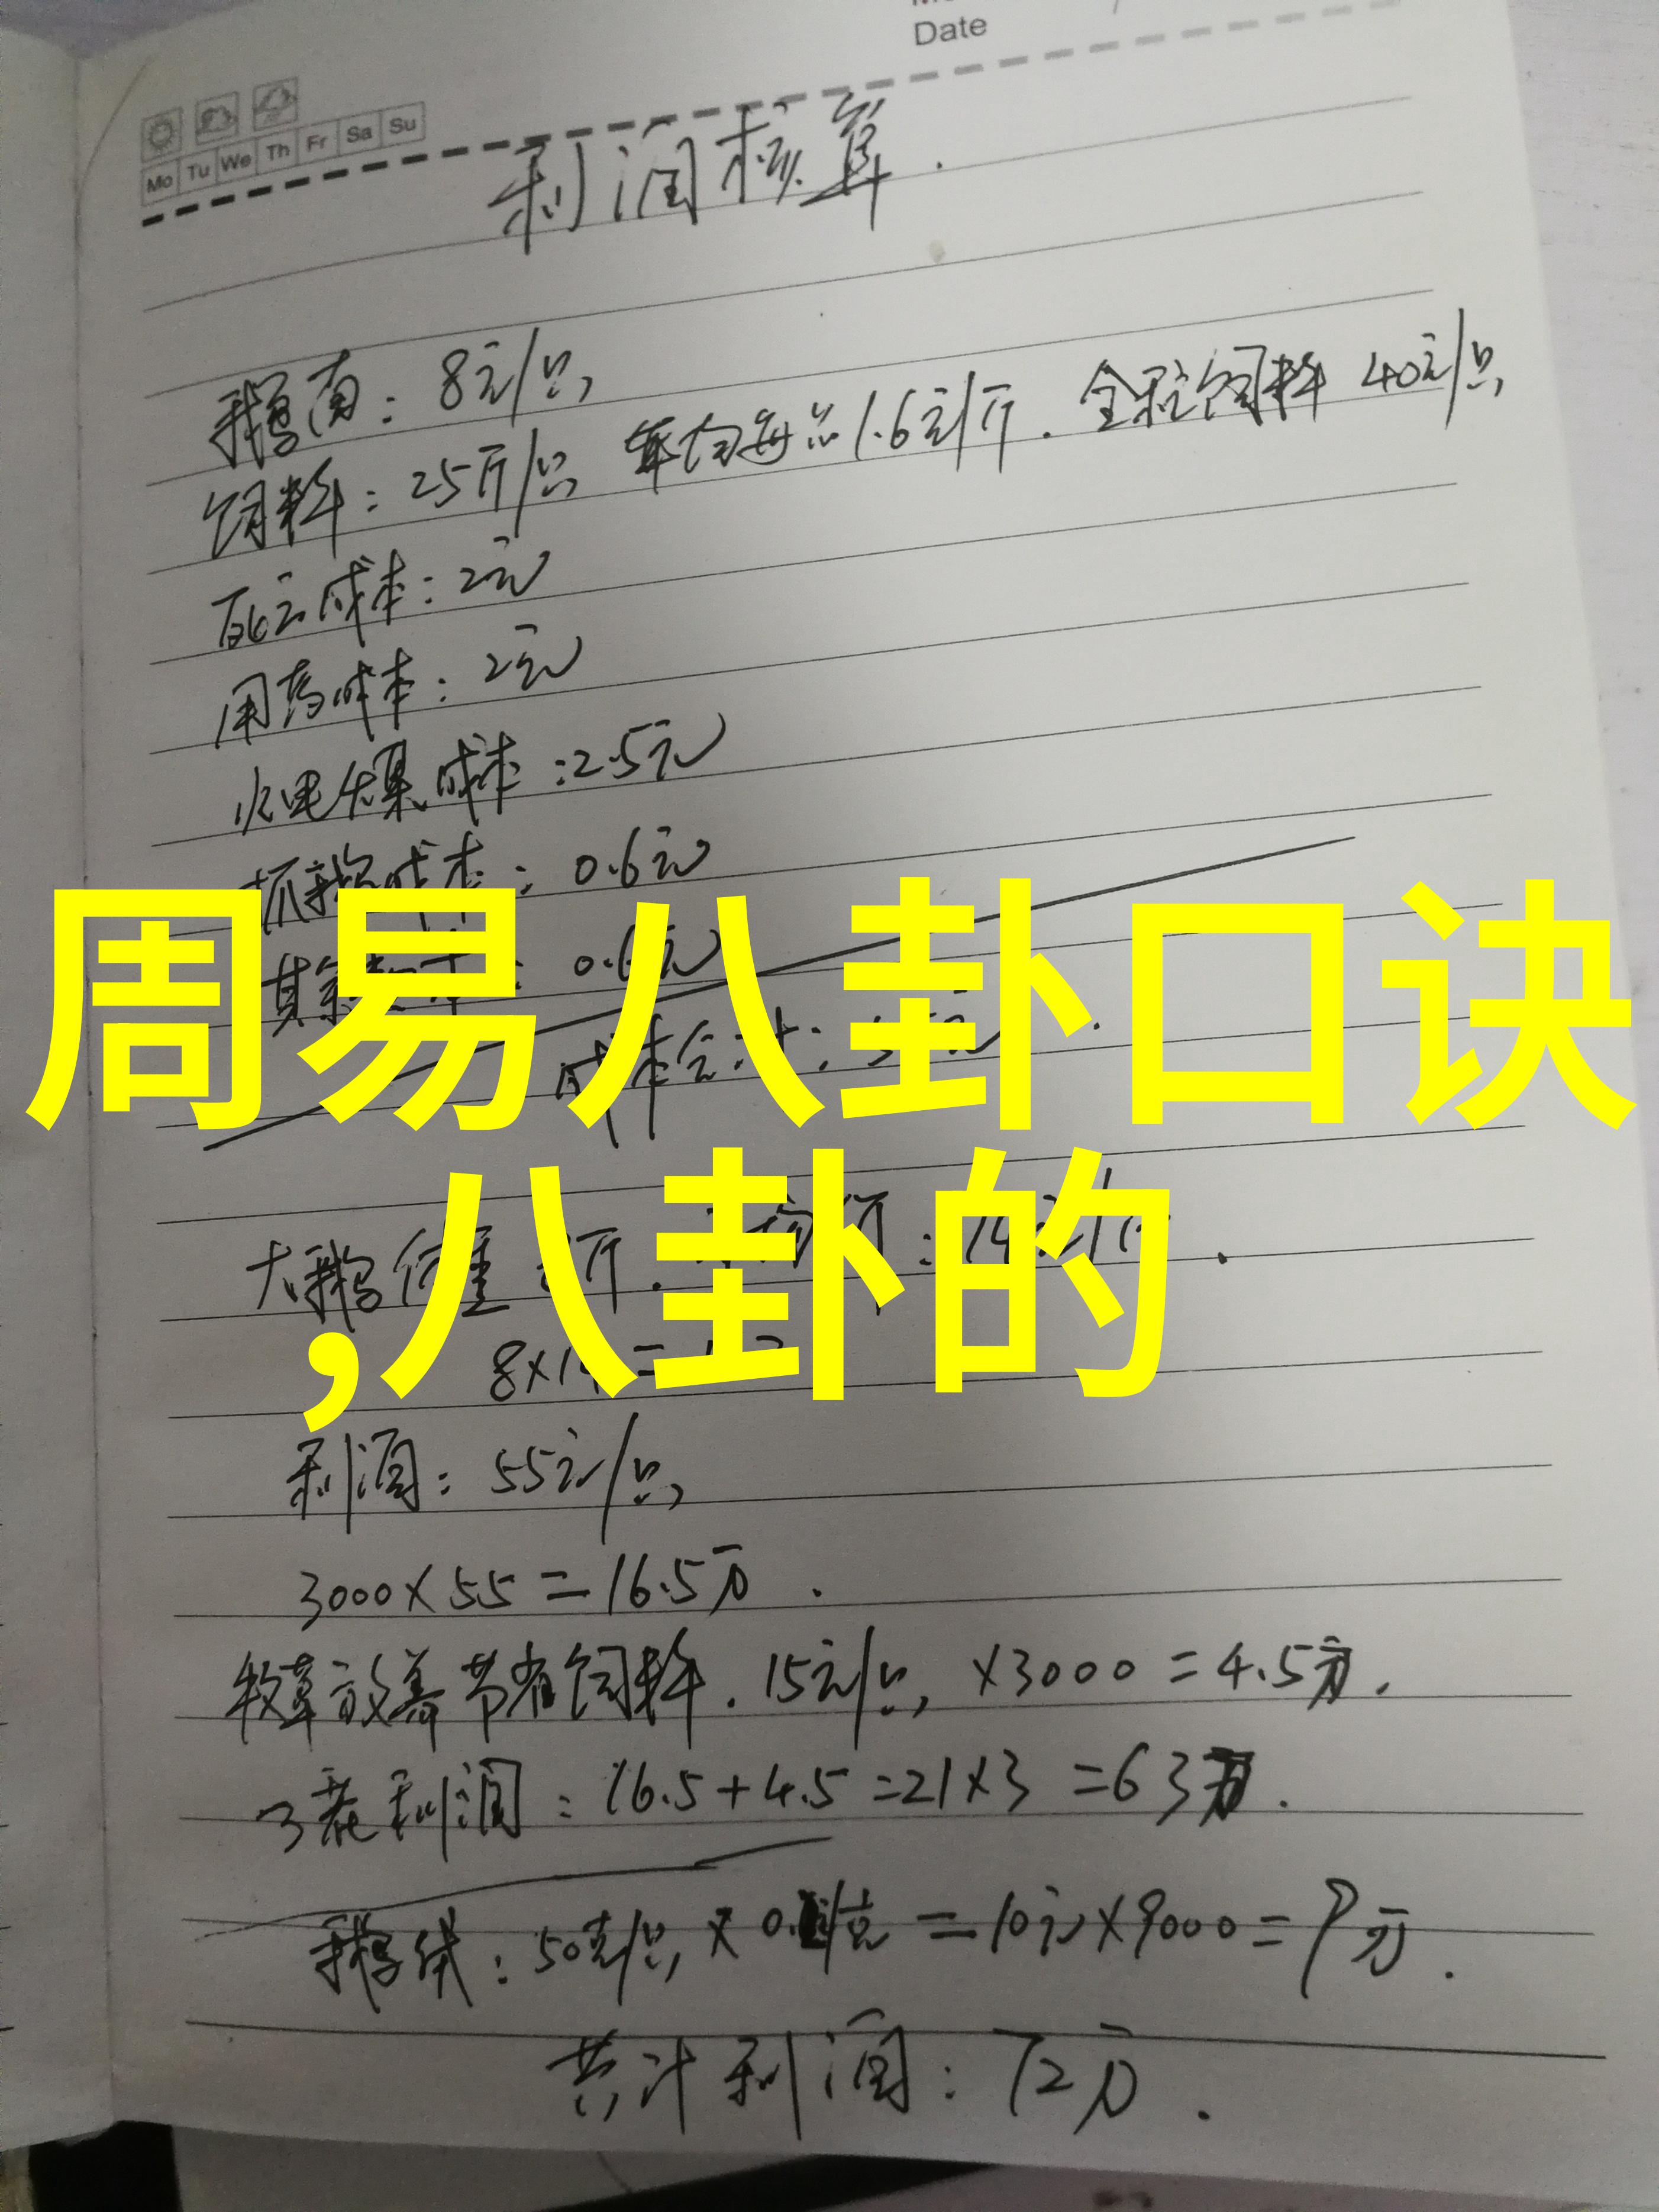 Date
Mo Tu We Th Fr Sa Su
利润核算.
鹅苗: 8元/只
饲料: 25斤/只 平均每斤1.6元/斤. 全程饲料 40元/只
死亡成本: 2元
用药成本: 2元
水电煤成本: 2.5元
抓鹅成本: 0.6元
其余
周易八卦口诀
成本合计:
,八卦的
大鹅体重
8×14=
利润: 55元/只
3000×55=16.5万.
牧草放养节省饲料. 15元/只, ×3000=4.5万.
3茬利润: 16.5+4.5=21×3=63万.
鹅绒: 50克/只, × 0. /克=10元×9000=9万.
共计利润: 72万.